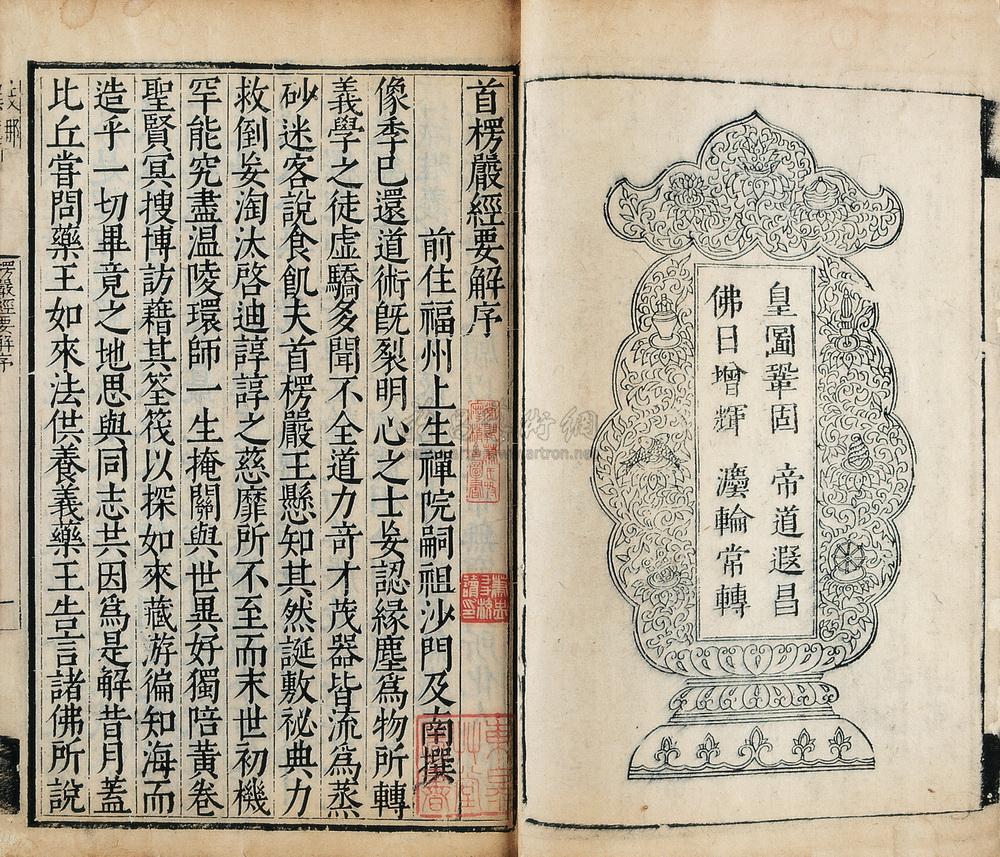 皇圖鞏固　帝道遐昌
佛日增輝　灋輪常轉
首楞嚴經要解序
前住福州上生禪院嗣祖沙門及南撰
像季已還道術既裂明心之士妄認緣塵為物所轉
義學之徒虛驕多聞不全道力竒才茂器皆流為蒸
砂迷客說食飢夫首楞嚴王懸知其然誕敷祕典力
救倒妄淘汰啓迪諄諄之慈靡所不至而末世初機
罕能究盡温陵環師一生掩關與世異好獨陪黃卷
聖賢冥搜博訪藉其筌筏以探如來藏游徧知海而
造乎一切畢竟之地思與同志共因為是解昔月蓋
比丘嘗問藥王如來法供養義藥王告言諸佛所說
楞嚴經要解序
一